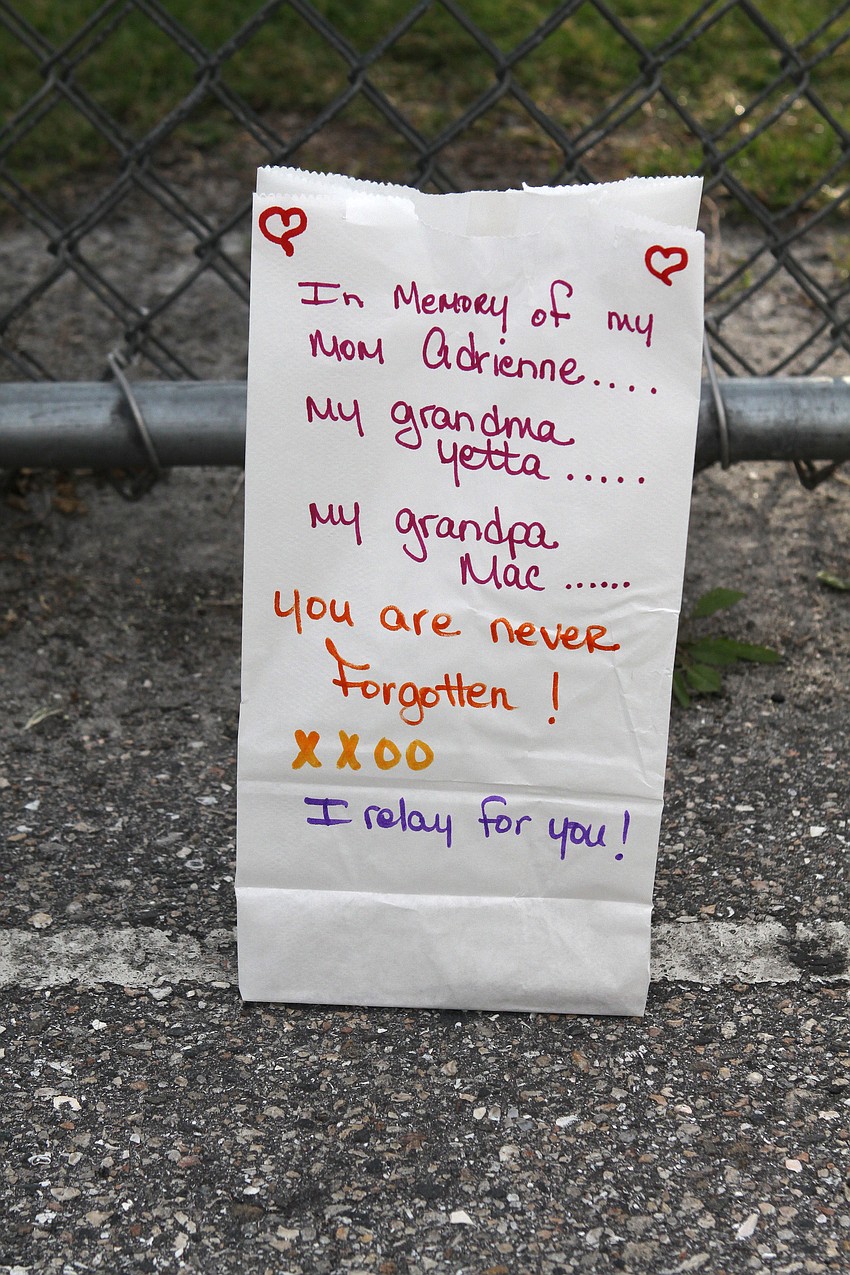 In Memory of my
Mom Adrienne....
My grandma
Yetta.....
My grandpa
Mac......
you are never
Forgotten!
XXOO
I relay for you!